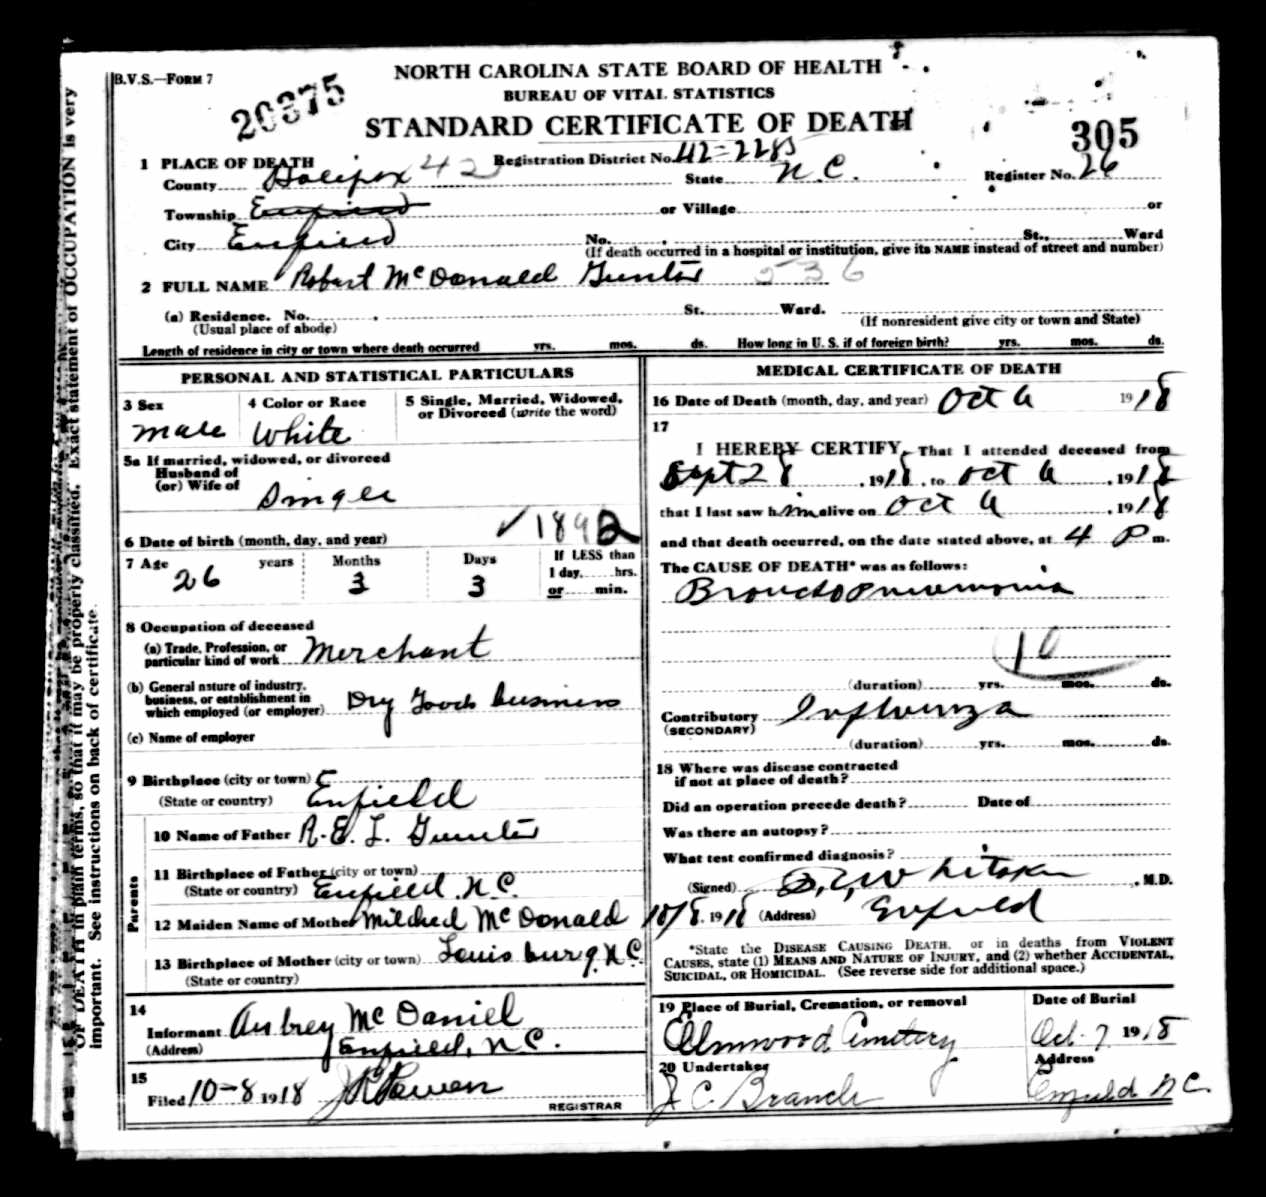 B.V.S.—FORM 7
NORTH CAROLINA STATE BOARD OF HEALTH
BUREAU OF VITAL STATISTICS
20375
STANDARD CERTIFICATE OF DEATH
305
1 PLACE OF DEATH
Registration District No. 42-2285
County Halifax 42
State N.C.
Register No. 26
Township Enfield or Village or
City Enfield No. St., Ward
(If death occurred in a hospital or institution, give its NAME instead of street and number)
2 FULL NAME Robert McDonald Gunter 536
(a) Residence. No. St. Ward.
(Usual place of abode)
(If nonresident give city or town and State)
Length of residence in city or town where death occurred yrs. mos. ds. How long in U. S. if of foreign birth? yrs. mos. ds.
PERSONAL AND STATISTICAL PARTICULARS
3 Sex
male
4 Color or Race
White
5 Single, Married, Widowed,
or Divorced (write the word)
5a If married, widowed, or divorced
Husband of
(or) Wife of
Single
6 Date of birth (month, day, and year) ✓ 1892
7 Age 26 years
Months 3
Days 3
If LESS than
1 day, hrs.
or min.
8 Occupation of deceased
(a) Trade, Profession, or
particular kind of work Merchant
(b) General nature of industry,
business, or establishment in
which employed (or employer) Dry Goods business
(c) Name of employer
9 Birthplace (city or town)
(State or country) Enfield
Parents
10 Name of Father R. E. L. Gunter
11 Birthplace of Father (city or town)
(State or country) Enfield N.C.
12 Maiden Name of Mother Mildred McDonald
13 Birthplace of Mother (city or town) Louisburg, N.C.
(State or country)
14
Informant Aubrey McDaniel
(Address) Enfield, N.C.
15
Filed 10-8 1918
REGISTRAR
MEDICAL CERTIFICATE OF DEATH
16 Date of Death (month, day, and year) Oct 6 1918
17
I HEREBY CERTIFY, That I attended deceased from
Sept 28, 1918, to Oct 6, 1918
that I last saw him alive on Oct 6, 1918
and that death occurred, on the date stated above, at 4 P m.
The CAUSE OF DEATH* was as follows:
Bronchopneumonia
10
(duration) yrs. mos. ds.
Contributory Influenza
(SECONDARY)
(duration) yrs. mos. ds.
18 Where was disease contracted
if not at place of death?
Did an operation precede death? Date of
Was there an autopsy?
What test confirmed diagnosis?
(Signed) Whitaker, M.D.
10/8, 1918 (Address) Enfield
*State the DISEASE CAUSING DEATH, or in deaths from VIOLENT
CAUSES, state (1) MEANS AND NATURE OF INJURY, and (2) whether ACCIDENTAL,
SUICIDAL, OR HOMICIDAL. (See reverse side for additional space.)
19 Place of Burial, Cremation, or removal
Elmwood Cemetery
Date of Burial
Oct 7 1918
20 Undertaker
J. C. Branch
Address
Enfield N.C.
OF DEATH in plain terms, so that it may be properly classified. Exact statement of OCCUPATION is very
important. See instructions on back of certificate.